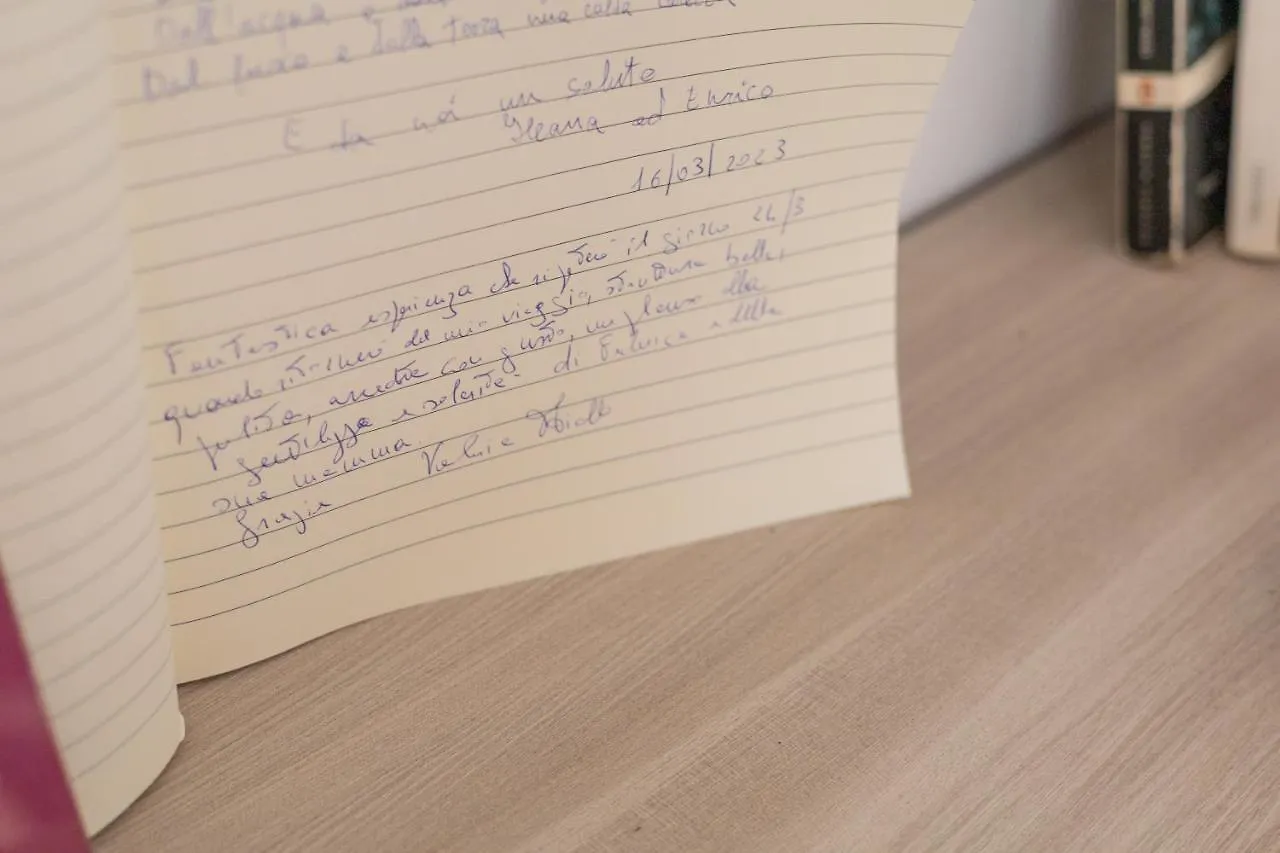 Dall'acqua e
Dal fuoco e dalla terra una calda
E da noi un saluto
Ileana ed Enrico
16/03/2023
Fantastica esperienza che ripeterò il giorno 24/3
quando ritornerò dal mio viaggio, struttura bella,
pulita, arredata con gusto, un plauso alla
gentilezza e solarità di Fabrizia e della
sua mamma.
Grazie Valeria